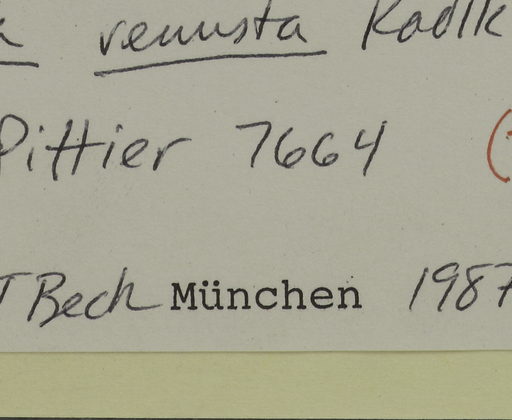 a venusta Radlk
Pittier 7664 (
T Beck München 1987